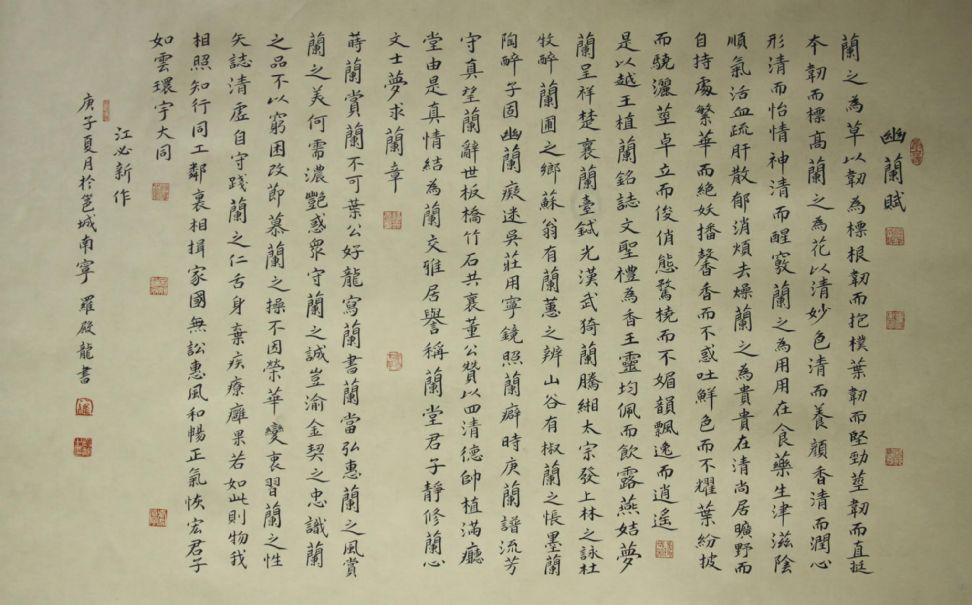 幽蘭賦
蘭之為草以韌為標根韌而抱樸葉韌而堅勁莖韌而直挺
本韌而標高蘭之為花以清妙色清而養顔香清而潤心
形清而怡情神清而醒竅蘭之為用用在食藥生津滋陰
順氣活血疏肝散郁消煩去燥蘭之為貴貴在清尚居曠野而
自持處繁華而絶妖播馨香而不惑吐鮮色而不耀葉紛披
而驍灑莖卓立而俊俏態驁橈而不媚韻飄逸而逍遙
是以越王植蘭銘誌文聖禮為香王靈均佩而飲露燕姞夢
蘭呈祥楚襄蘭臺弑光漢武猗蘭騰緗太宗發上林之詠杜
牧醉蘭圃之鄉蘇翁有蘭蕙之辨山谷有椒蘭之悵墨蘭
陶醉子固幽蘭癡迷吳莊用寧鏡照蘭癖時庚蘭譜流芳
守真望蘭辭世板橋竹石共襄董公贊以四清德帥植滿廳
堂由是真情結為蘭交雅居譽稱蘭堂君子靜修蘭心
文士夢求蘭章
蒔蘭賞蘭不可葉公好龍寫蘭書蘭當弘惠蘭之風賞
蘭之美何需濃艷惑眾守蘭之誠豈渝金契之忠識蘭
之品不以窮困改節慕蘭之操不因榮華變衷習蘭之性
矢誌清虛自守踐蘭之仁舌身棄疾療癰果若如此則物我
相照知行同工鄰裏相揖家國無訟惠風和暢正氣恢宏君子
如雲環宇大同
江必新作
庚子夏月於邕城南寧 羅殿龍書